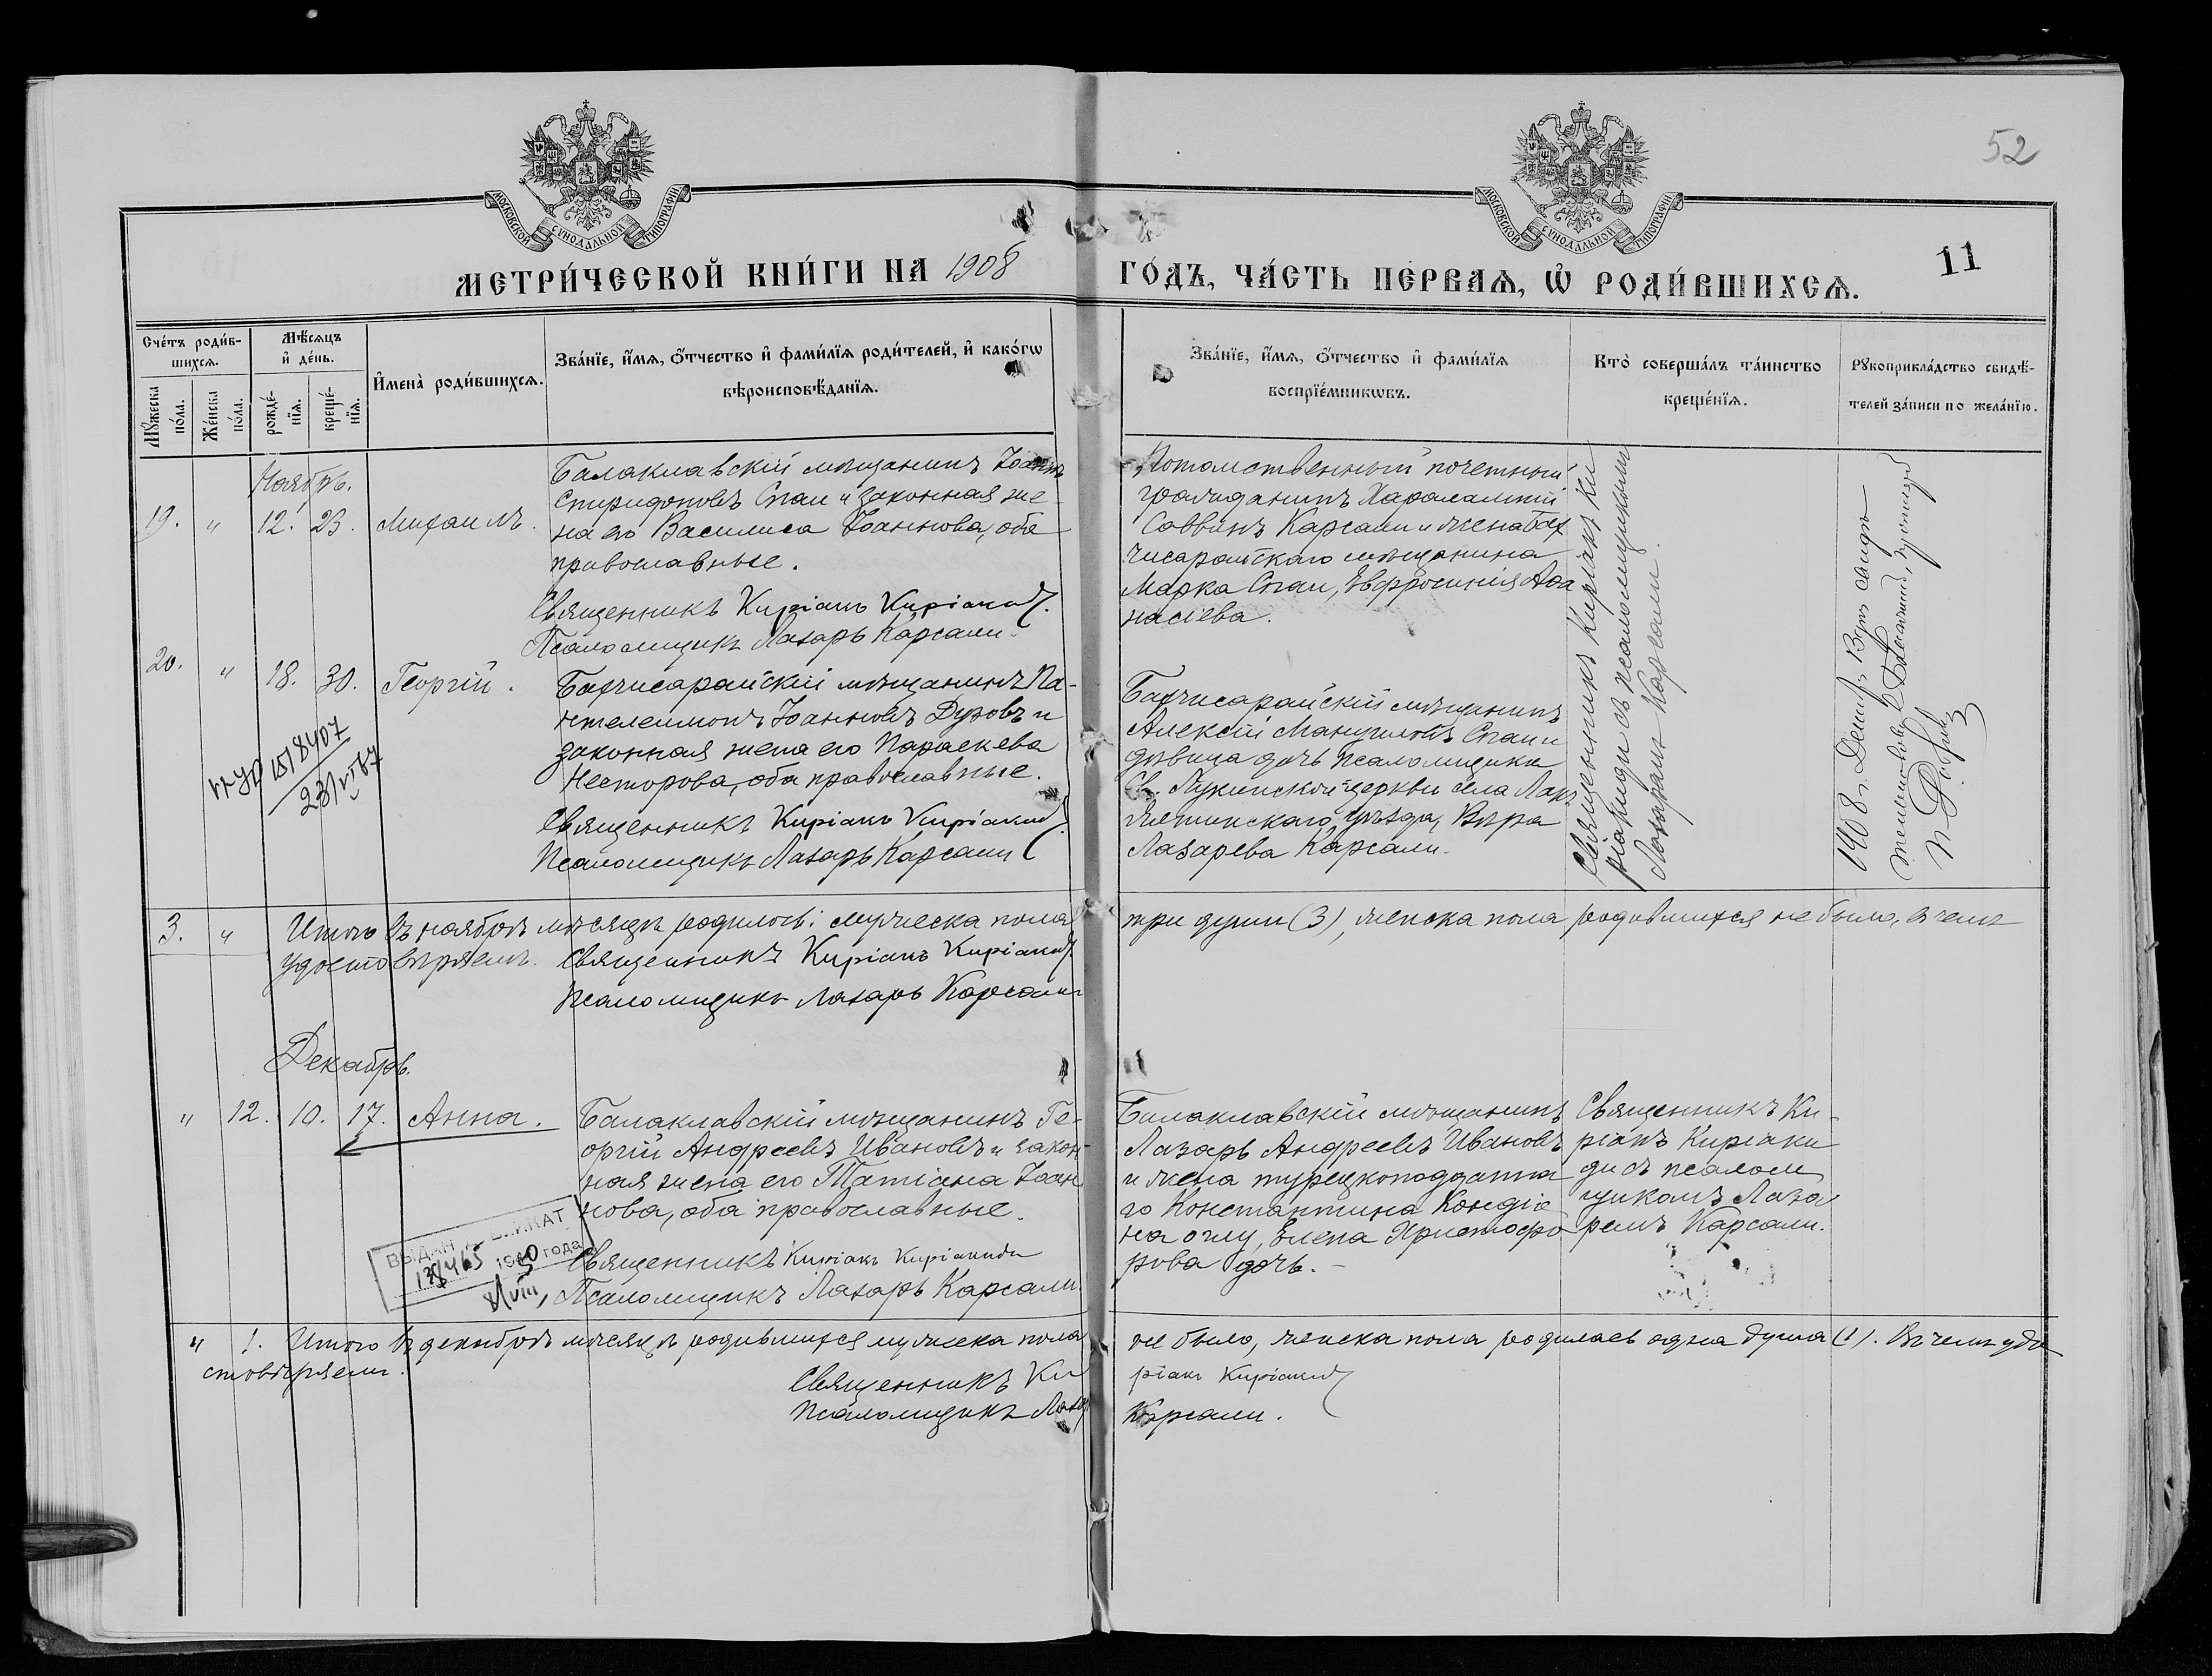 52
МОСКОВСКОЙ СѴНОДАЛЬНОЙ ТИПОГРАФІИ
МОСКОВСКОЙ СѴНОДАЛЬНОЙ ТИПОГРАФІИ
МЕТРИ́ЧЕСКОЙ КНИ́ГИ НА 1908 ГО́ДЪ, ЧА́СТЬ ПЕ́РВАѦ, Ѡ҆ РОДИ́ВШИХСѦ.
11
Сче́тъ роди́в-
шихсѧ.
Мѣ́сѧцъ
и҆ де́нь.
Мꙋ́жеска
по́ла.
Же́нска
по́ла.
рожде́-
нїѧ.
креще́-
нїѧ.
И҆мена̀ роди́вшихсѧ.
Зва́нїе, и҆́мѧ, ѻ҆́тчество и҆ фами́лїѧ роди́телей, и҆ како́гѡ
вѣроисповѣ́данїѧ.
Зва́нїе, и҆́мѧ, ѻ҆́тчество и҆ фами́лїѧ
воспрїе́мникѡвъ.
Кто̀ соверша́лъ та́инство
креще́нїѧ.
Рꙋкоприкла́дство свидѣ́-
телей за́писи по жела́нїю.
Ноябрь.
19. " 12. 23. Михаилъ.
Балаклавскій мѣщанинъ Іоаннъ
Спиридоновъ Спаи и законная же-
на его Василиса Іоаннова, оба
православные.
Священникъ Киріакъ Киріакиди.
Псаломщикъ Лазарь Карсали.
Потомственный почетный
гражданинъ Харалампій
Саввинъ Карсали и жена Бах
чисарайскаго мѣщанина
Марка Спаи, Евфросинія Афа
насіева.
20. " 18. 30. Георгій.
Бахчисарайскій мѣщанинъ Па-
нтелеимонъ Іоанновъ Дузовъ и
законная жена его Параскева
Несторова, оба православные.
Священникъ Киріакъ Киріакиди.
Псаломщикъ Лазарь Карсали
Бахчисарайскій мѣщанинъ
Алексій Мануиловъ Спаи и
дѣвица дочь псаломщика
Св. Лукинской церкви села Лаки
Ялтинскаго уѣзда, Вѣра
Лазарева Карсали.
Священникъ Киріакъ Ки
ріакиди съ псаломщикомъ
Лазаремъ Карсали.
1908 г. Декаб.
3. " Итого въ ноябрѣ мѣсяцѣ родилось: мужеска пола три души (3), женска пола родившихся не было, въ чемъ
удостовѣряемъ. Священникъ Киріакъ Киріакиди.
Псаломщикъ Лазарь Карсали
Декабрь.
" 12. 10. 17. Анна.
Балаклавскій мѣщанинъ Ге-
оргій Андреевъ Ивановъ и закон-
ная жена его Татіана Іоан
нова, оба православные.
Священникъ Киріакъ Киріакиди
Псаломщикъ Лазарь Карсали.
Балаклавскій мѣщанинъ
Лазарь Андреевъ Ивановъ
и жена турецкоподданна
го Константина Кондіе
на оглу, Елена Христофо
рова дочь.
Священникъ Ки-
ріакъ Киріаки
ди съ псалом
щикомъ Лаза
ремъ Карсали.
" 1. Итого въ декабрѣ мѣсяцѣ родившихся мужеска пола не было, женска пола родилась одна душа (1). Въ чемъ удо
стовѣряемъ.
Священникъ Киріакъ Киріакиди
Псаломщикъ Лазарь Карсали.